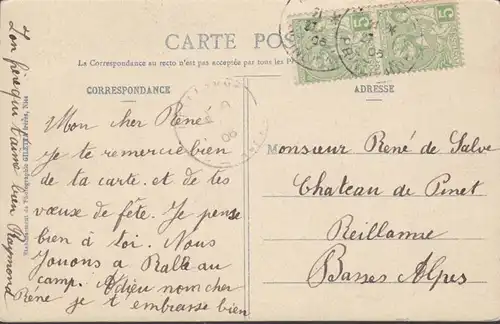 CARTE POS
La Correspondance au recto n'est pas acceptée par tous les P
CORRESPONDANCE
ADRESSE
Mon cher René
je te remercie bien
de ta carte et de tes
vœux de fête. Je pense
bien à toi. Nous
Jouons a Rallé au
camp. Adieu mon cher
René je t'embrasse bien
Ton frère qui t'aime bien Raymond
Monsieur René de Salve
Chateau de Pinet
Reillanne
Basses Alpes
5
5
GILETTA
Nice